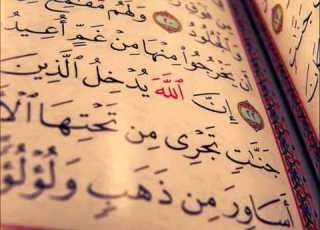 مِن فَوْقِ
وَٱلْجُلُودُ ٢٠ وَلَهُم مَّقَٰمِعُ
أَن يَخْرُجُوا۟ مِنْهَا مِنْ غَمٍّ أُعِيدُ
٢٢ إِنَّ ٱللَّهَ يُدْخِلُ ٱلَّذِينَ
جَنَّٰتٍ تَجْرِى مِن تَحْتِهَا ٱلْأَ
أَسَاوِرَ مِن ذَهَبٍ وَلُؤْلُؤًا